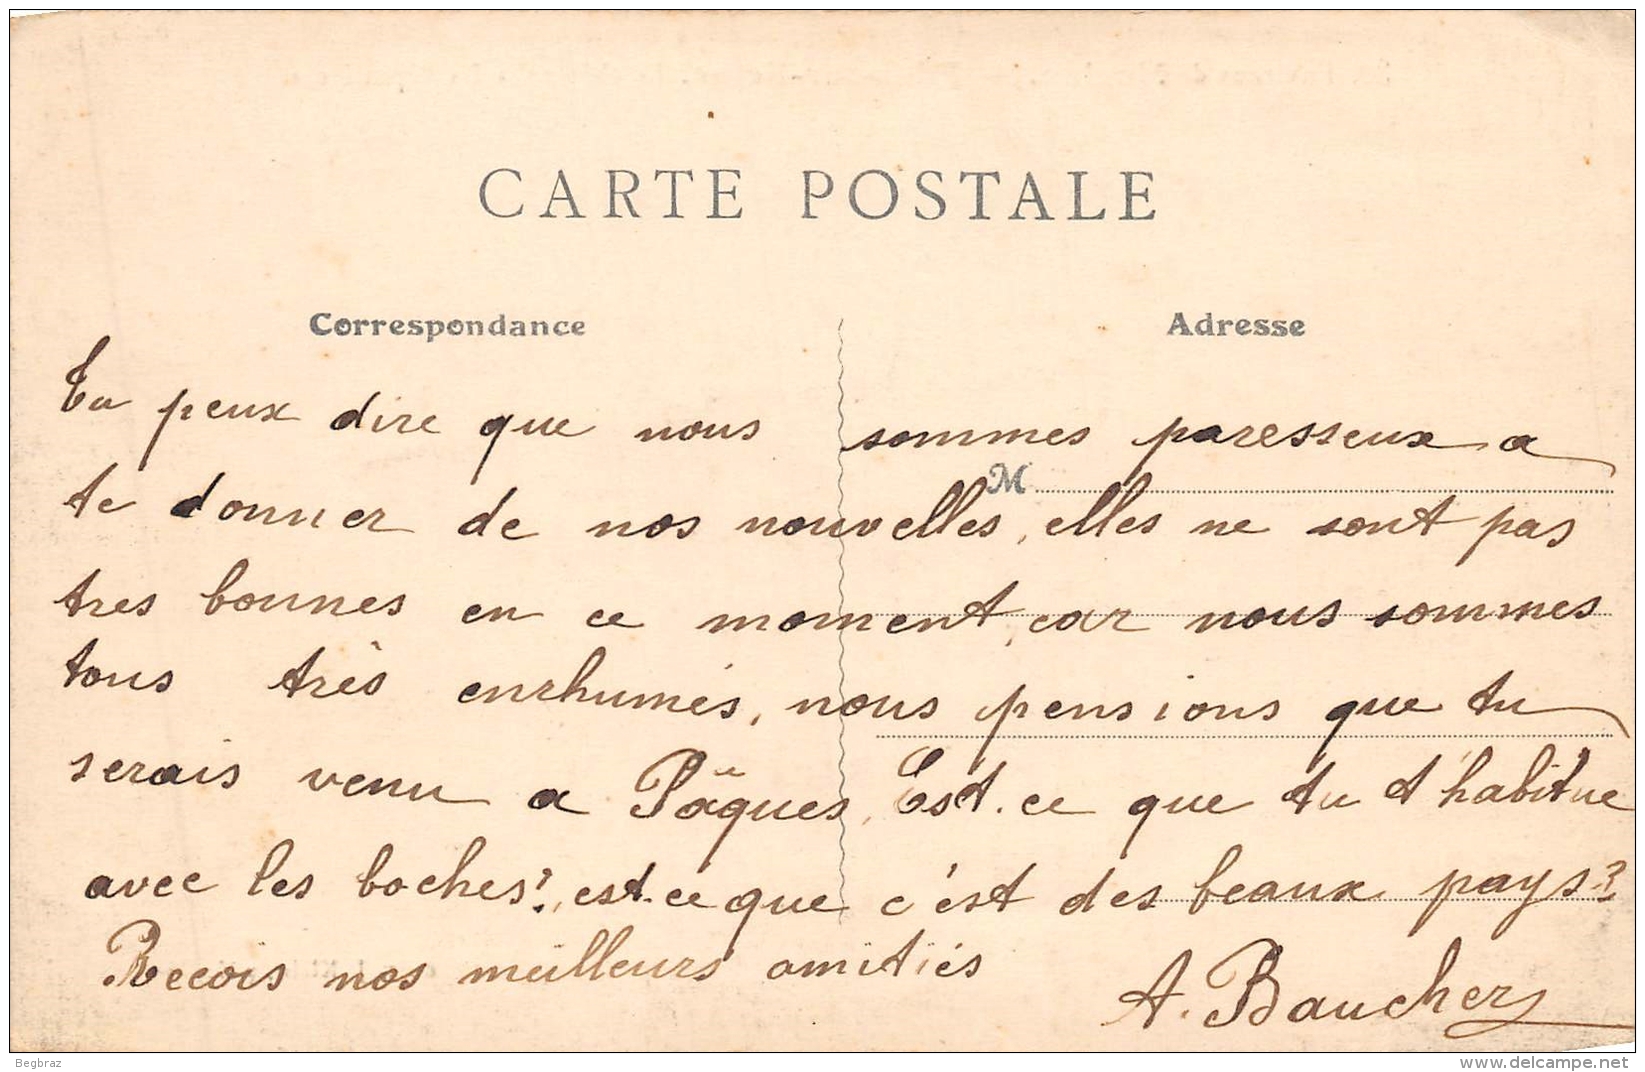 CARTE POSTALE
Correspondance
Adresse
Tu peux dire que nous sommes paresseux a
M
te donner de nos nouvelles, elles ne sont pas
tres bonnes en ce moment, car nous sommes
tous très enrhumés, nous pensions que tu
serais venu a Pâques, Est-ce que tu t'habitue
avec les boches?, est-ce que c'est des beaux pays?
Recois nos meilleurs amitiés
A. Baucher
Begbraz
www.delcampe.net